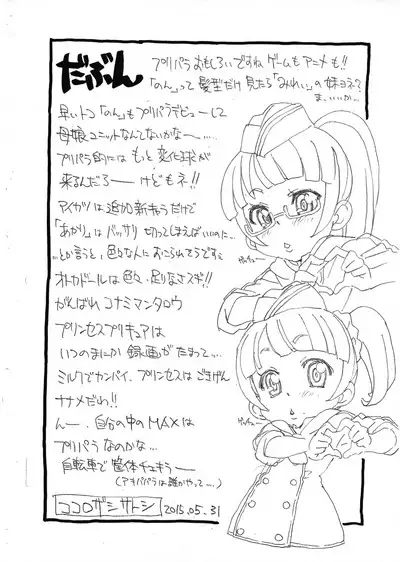 だぶん
プリパラおもしろいですね ゲームもアニメも!!
「のん」って髪型だけ見たら「みれぃ」の妹ヨネ?
ま、いいか…
早いトコ「のん」もプリパラデビューして
母娘ユニットなんてないかな〜ー…
プリパラ的にはもっと変化球が
来るんだろ——けどもネ!!
アイカツは追加新キャラだけで
「あかり」はバッサリ切ってしまえばいいのに…
とか言うと、色々なんにおこられてうですぇ
オトカドールは色々足りなさスギ!!
がんばれコナミマンタロウ
プリンセスプリキュアは
いつのまにか録画がたまって…
ミルクでカンパイ、プリンセスはごきげん
ナナメだわ!!
んー、自分の中のMAXは
プリパラなのかな…
自転車で筐体チェキラー
(アオパパラは誰がやって…)
ココロザシサトシ 2015.05.31